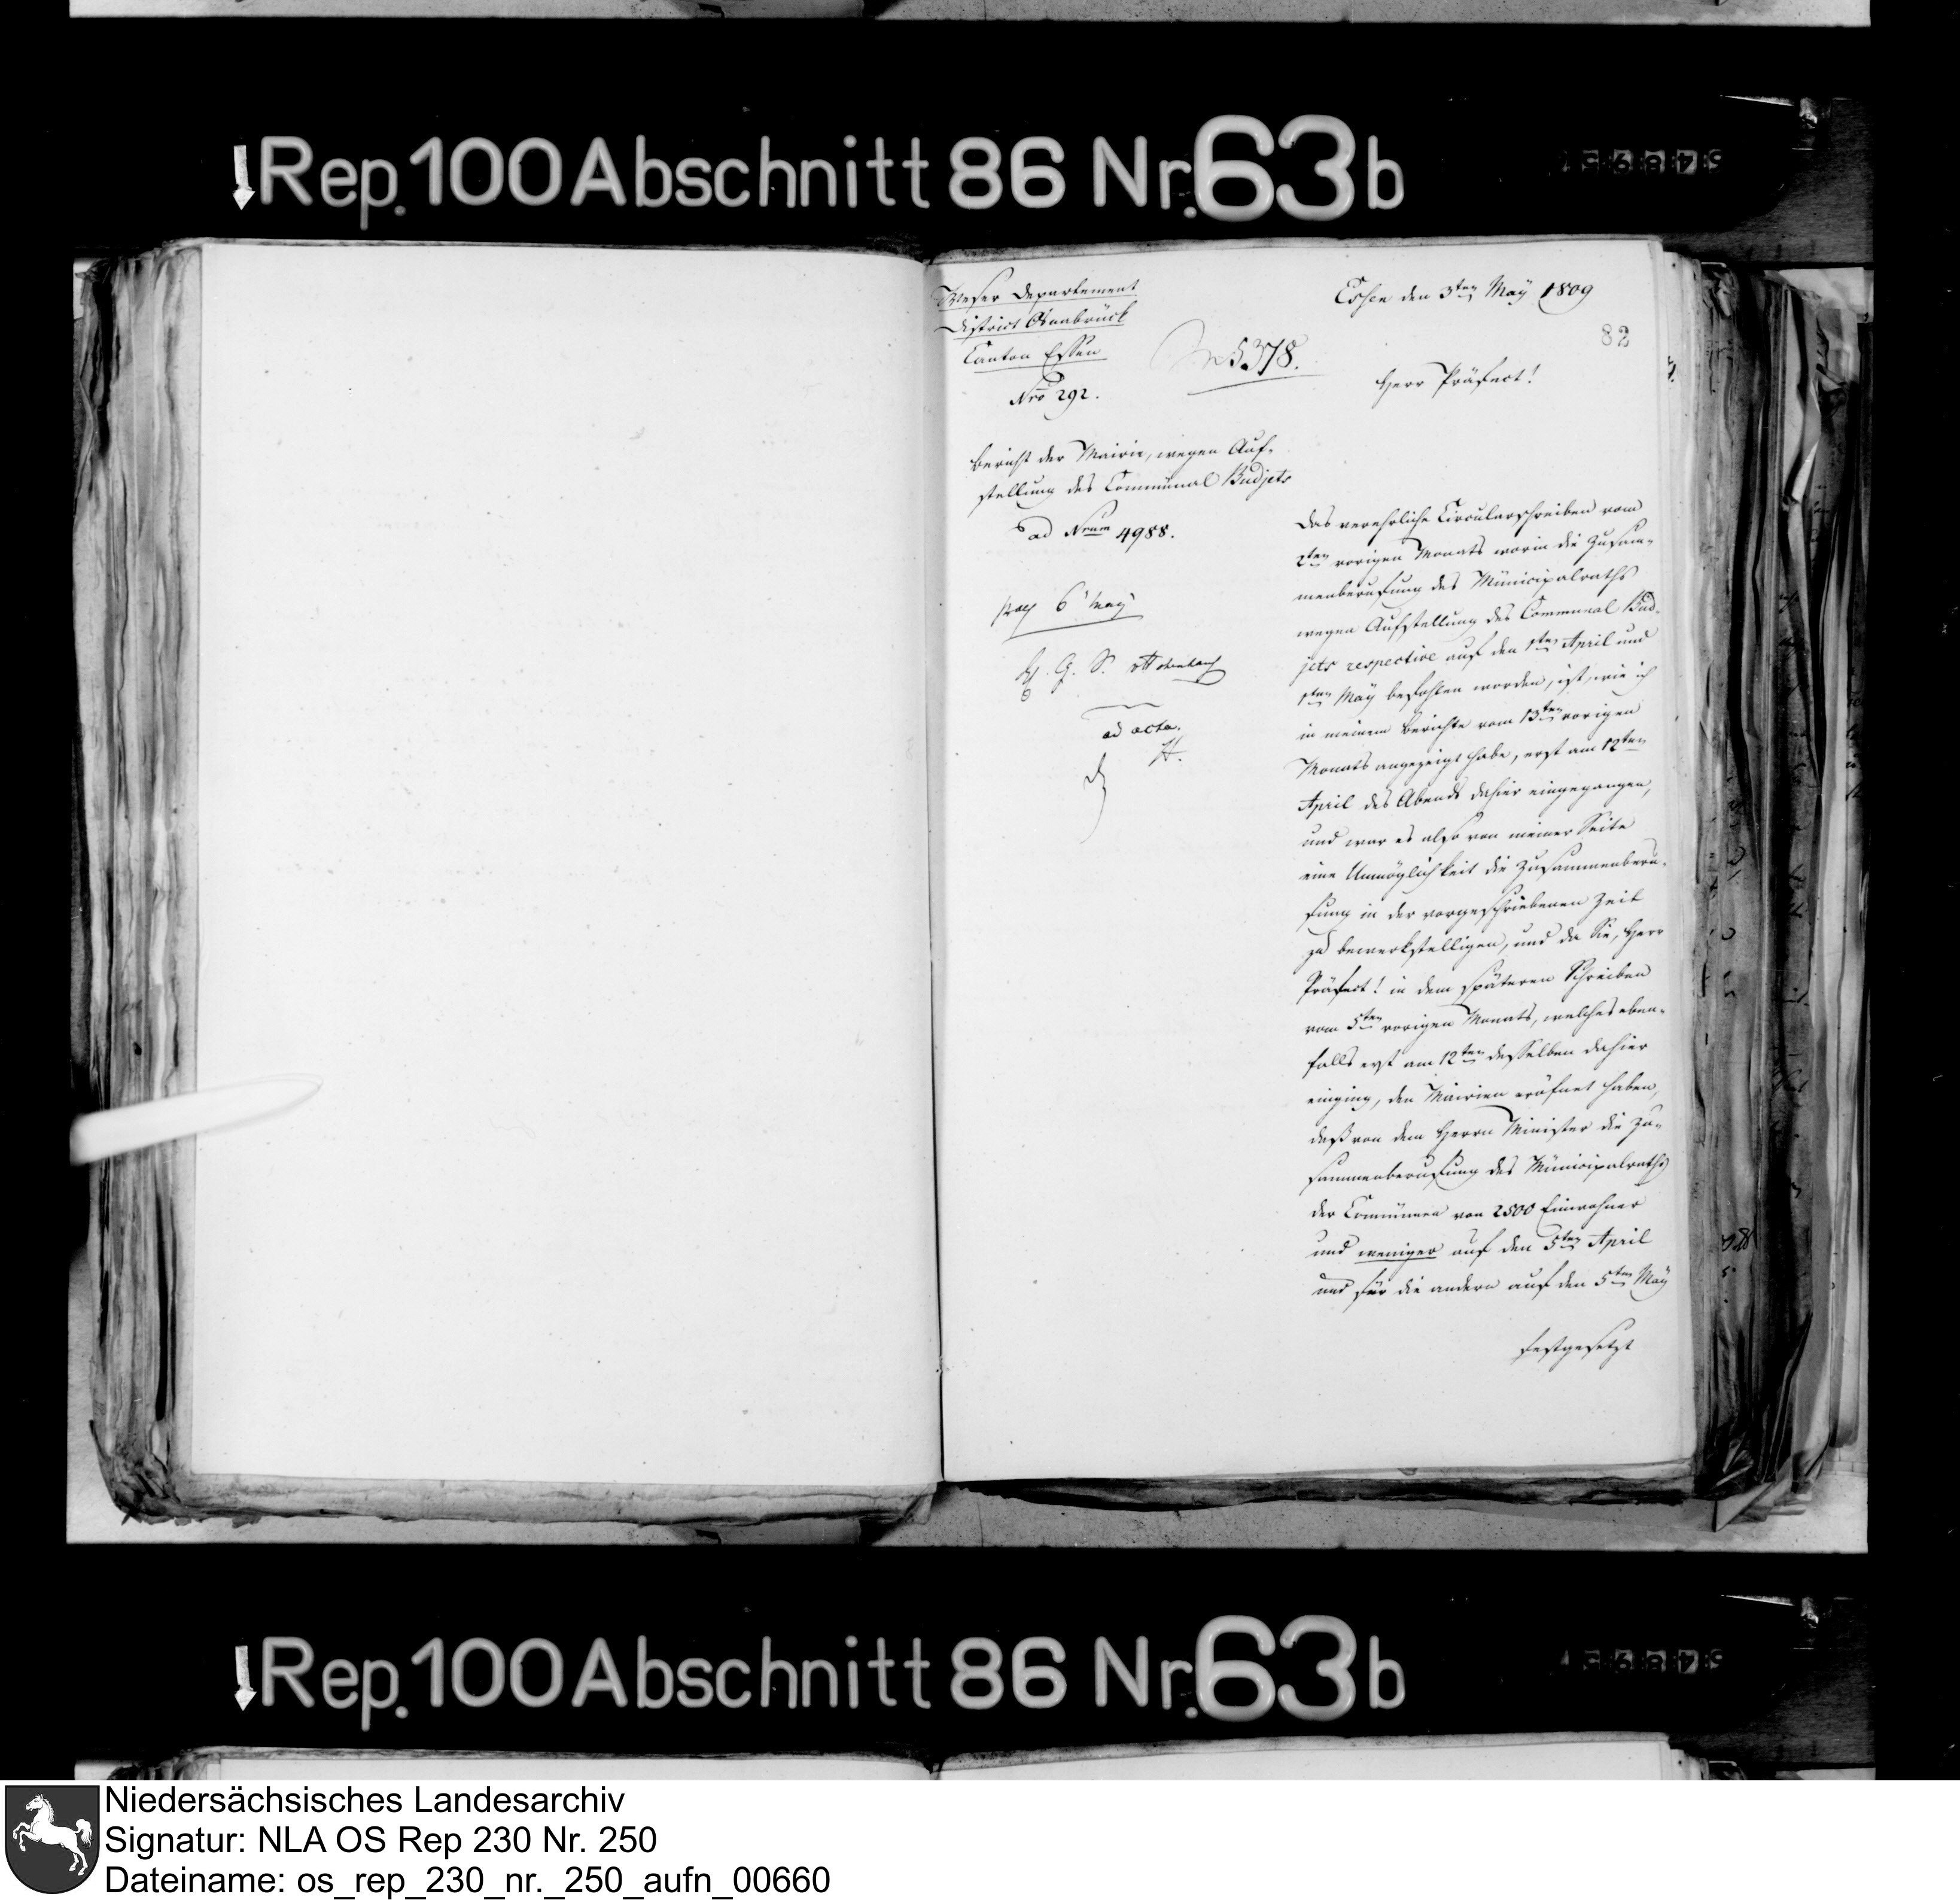 Rep. 100 Abschnitt 86 Nr. 63 b
Weser Departement
District Osnabrück
Canton Essen
Nro 292.
N 5378.
Essen den 3ten May 1809
82
Herr Präfect!
Bericht der Mairie, wegen Auf-
stellung des Communal Budjets
ad Nrum 4988.
6 May
ad acta.
H.
Das verehrliche Circularschreiben vom
2ten vorigen Monats worin die Zusam-
menberufung des Municipalraths
wegen Aufstellung des Communal Bud-
jets respective auf den 1ten April und
1ten May befohlen worden, ist, wie ich
in meinem Berichte vom 13ten vorigen
Monats angezeigt habe, erst am 12ten
April des Abends dahier eingegangen,
und war es also von meiner Seite
eine Unmöglichkeit die Zusammenberu-
fung in der vorgeschriebenen Zeit
zu bewerkstelligen, und da Sie, Herr
Präfect! in dem späteren Schreiben
vom 5ten vorigen Monats, welches eben-
falls erst am 12ten desselben dahier
einging, den Mairien eröfnet haben,
daß von dem Herrn Minister die Zu-
sammenberufung des Municipalraths
der Communen von 2500 Einwohner
und weniger auf den 5ten April
und für die andern auf den 5ten May
festgesetzt
Rep. 100 Abschnitt 86 Nr. 63 b
Niedersächsisches Landesarchiv
Signatur: NLA OS Rep 230 Nr. 250
Dateiname: os_rep_230_nr._250_aufn_00660